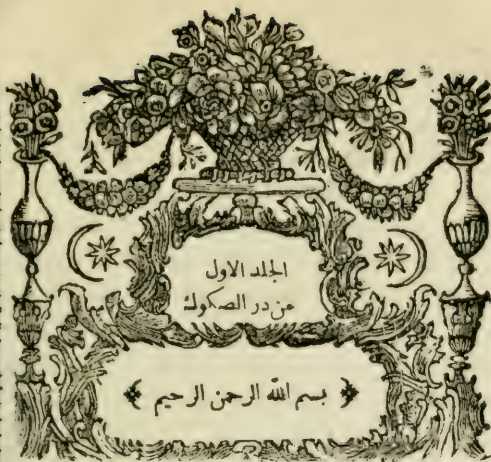 الجلد الاول
من در الصكوك
﴿ بسم الله الرحمن الرحيم ﴾